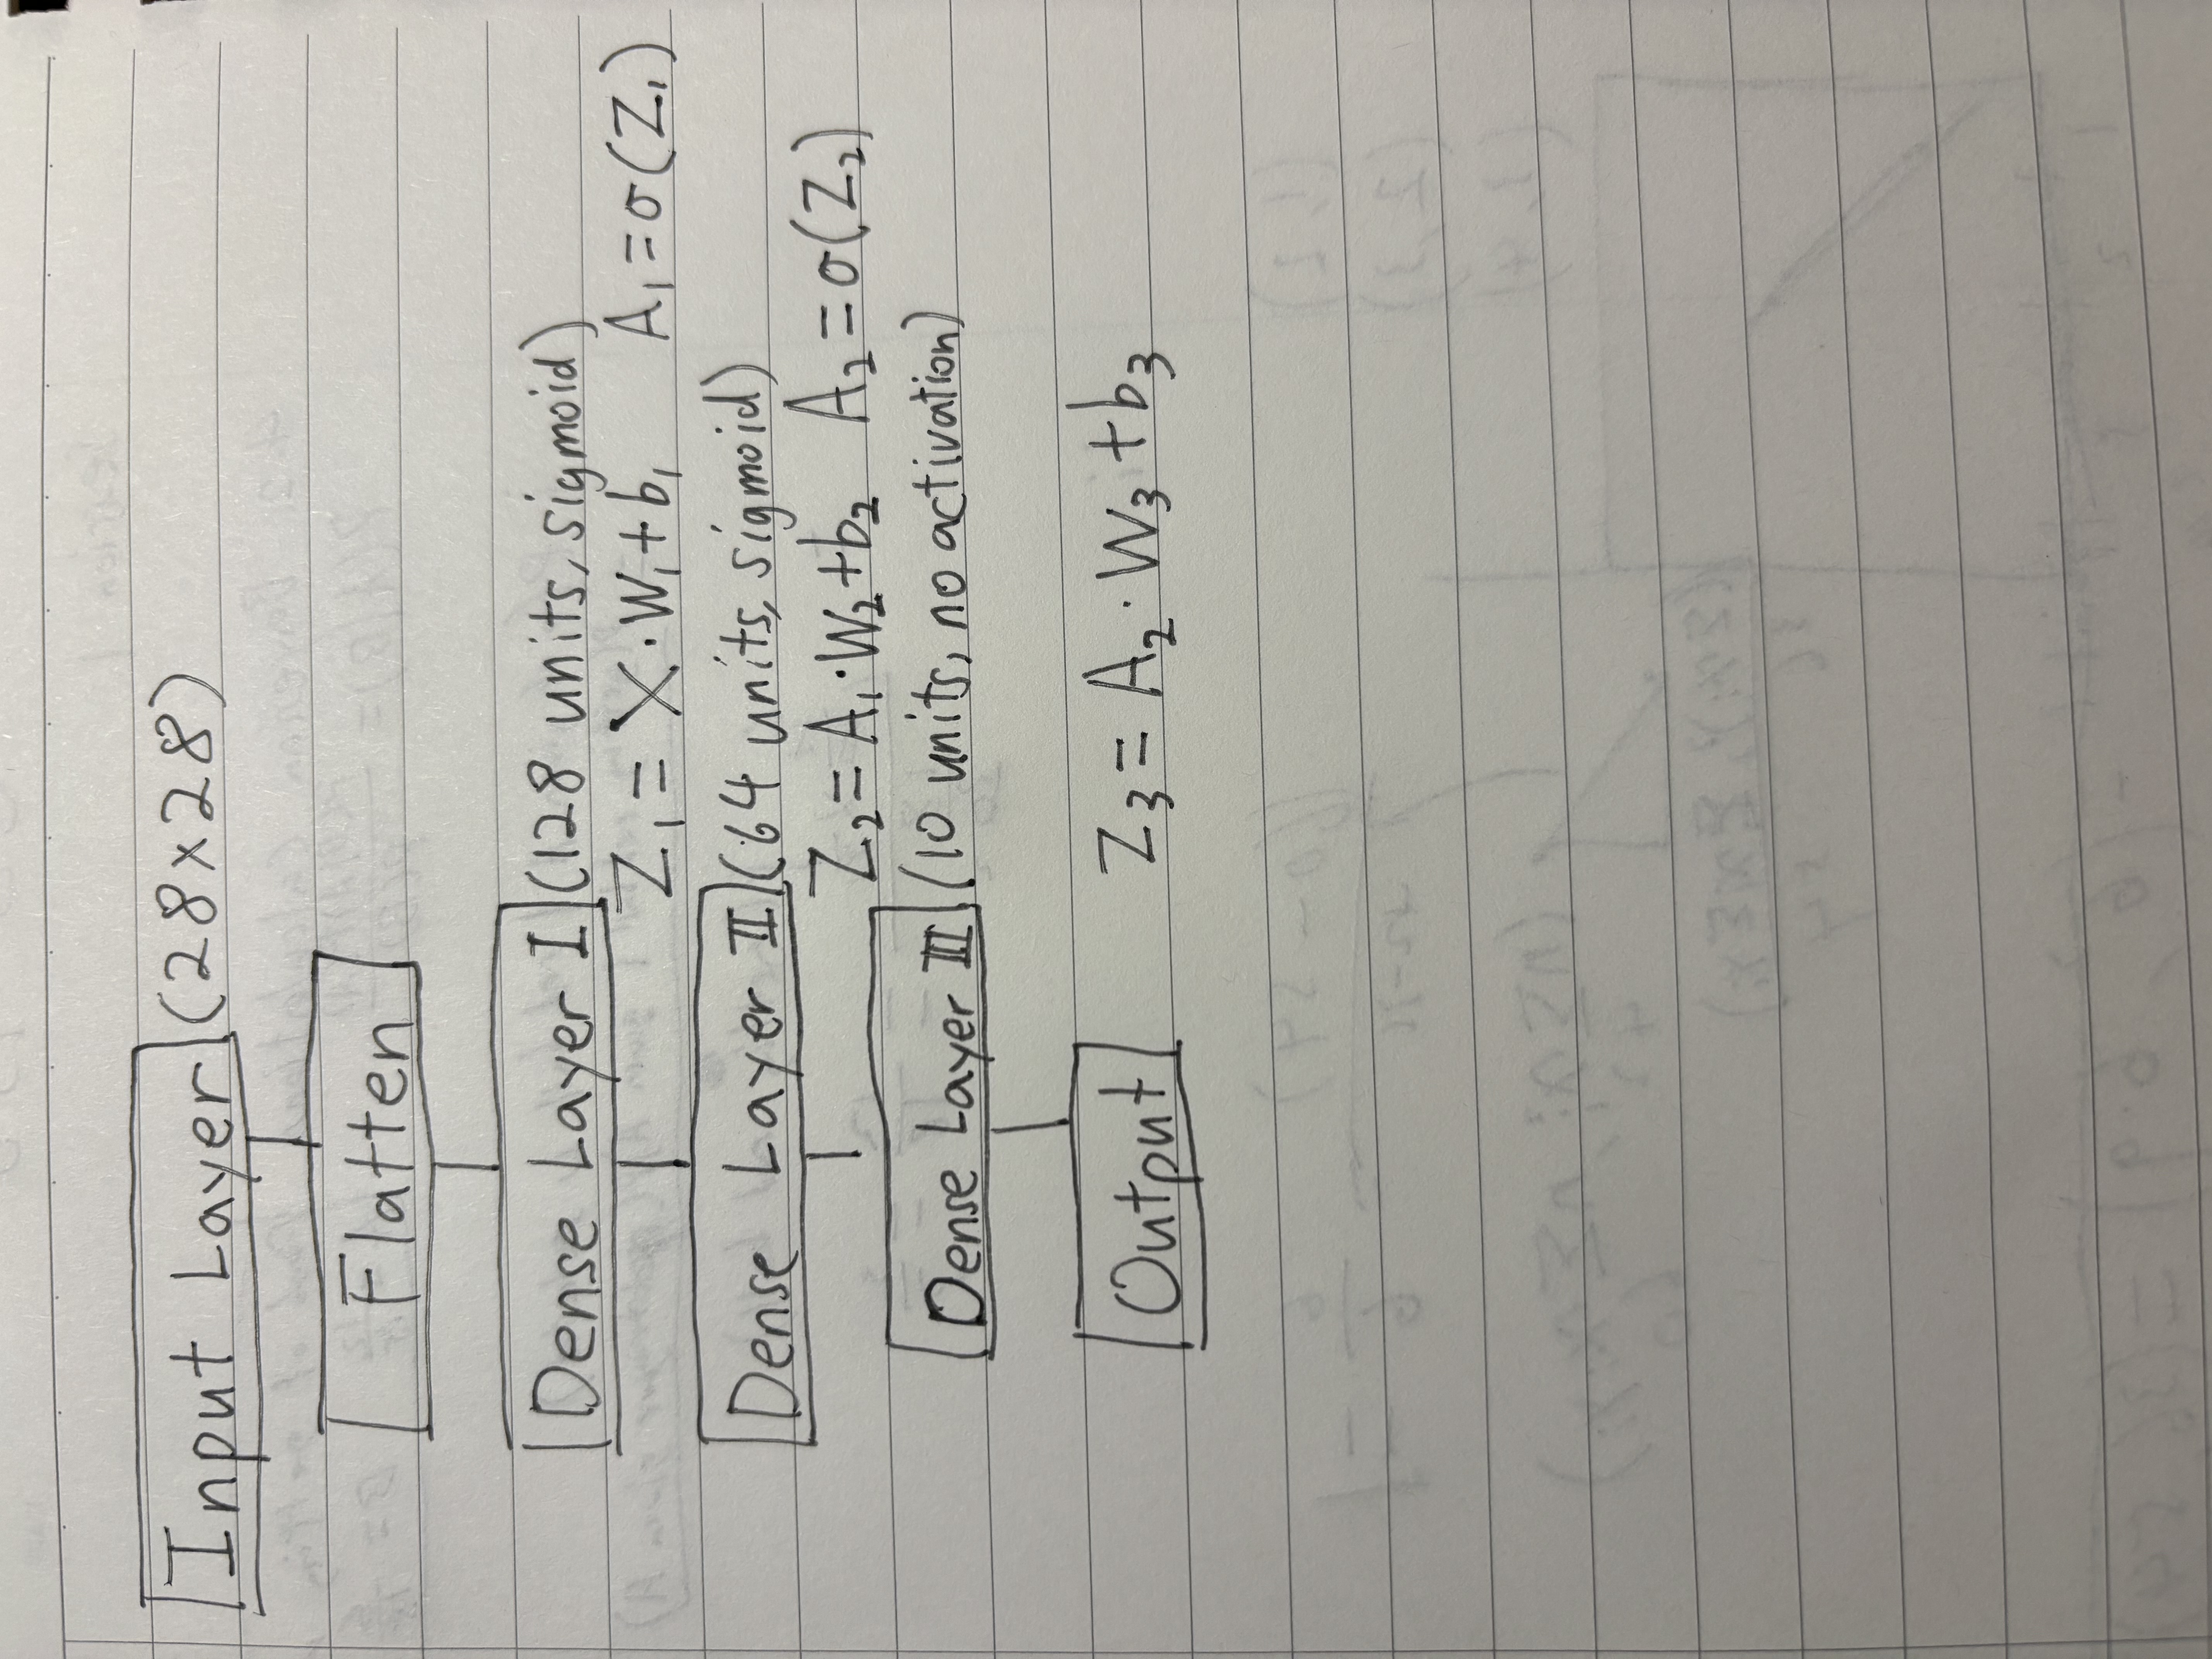 Input Layer (28x28)
Flatten
Dense Layer I (128 units, sigmoid)
Z₁ = X·W₁+b₁ A₁=σ(Z₁)
Dense Layer II (64 units, sigmoid)
Z₂ = A₁·W₂+b₂ A₂=σ(Z₂)
Dense Layer III (10 units, no activation)
Output Z₃ = A₂·W₃+b₃